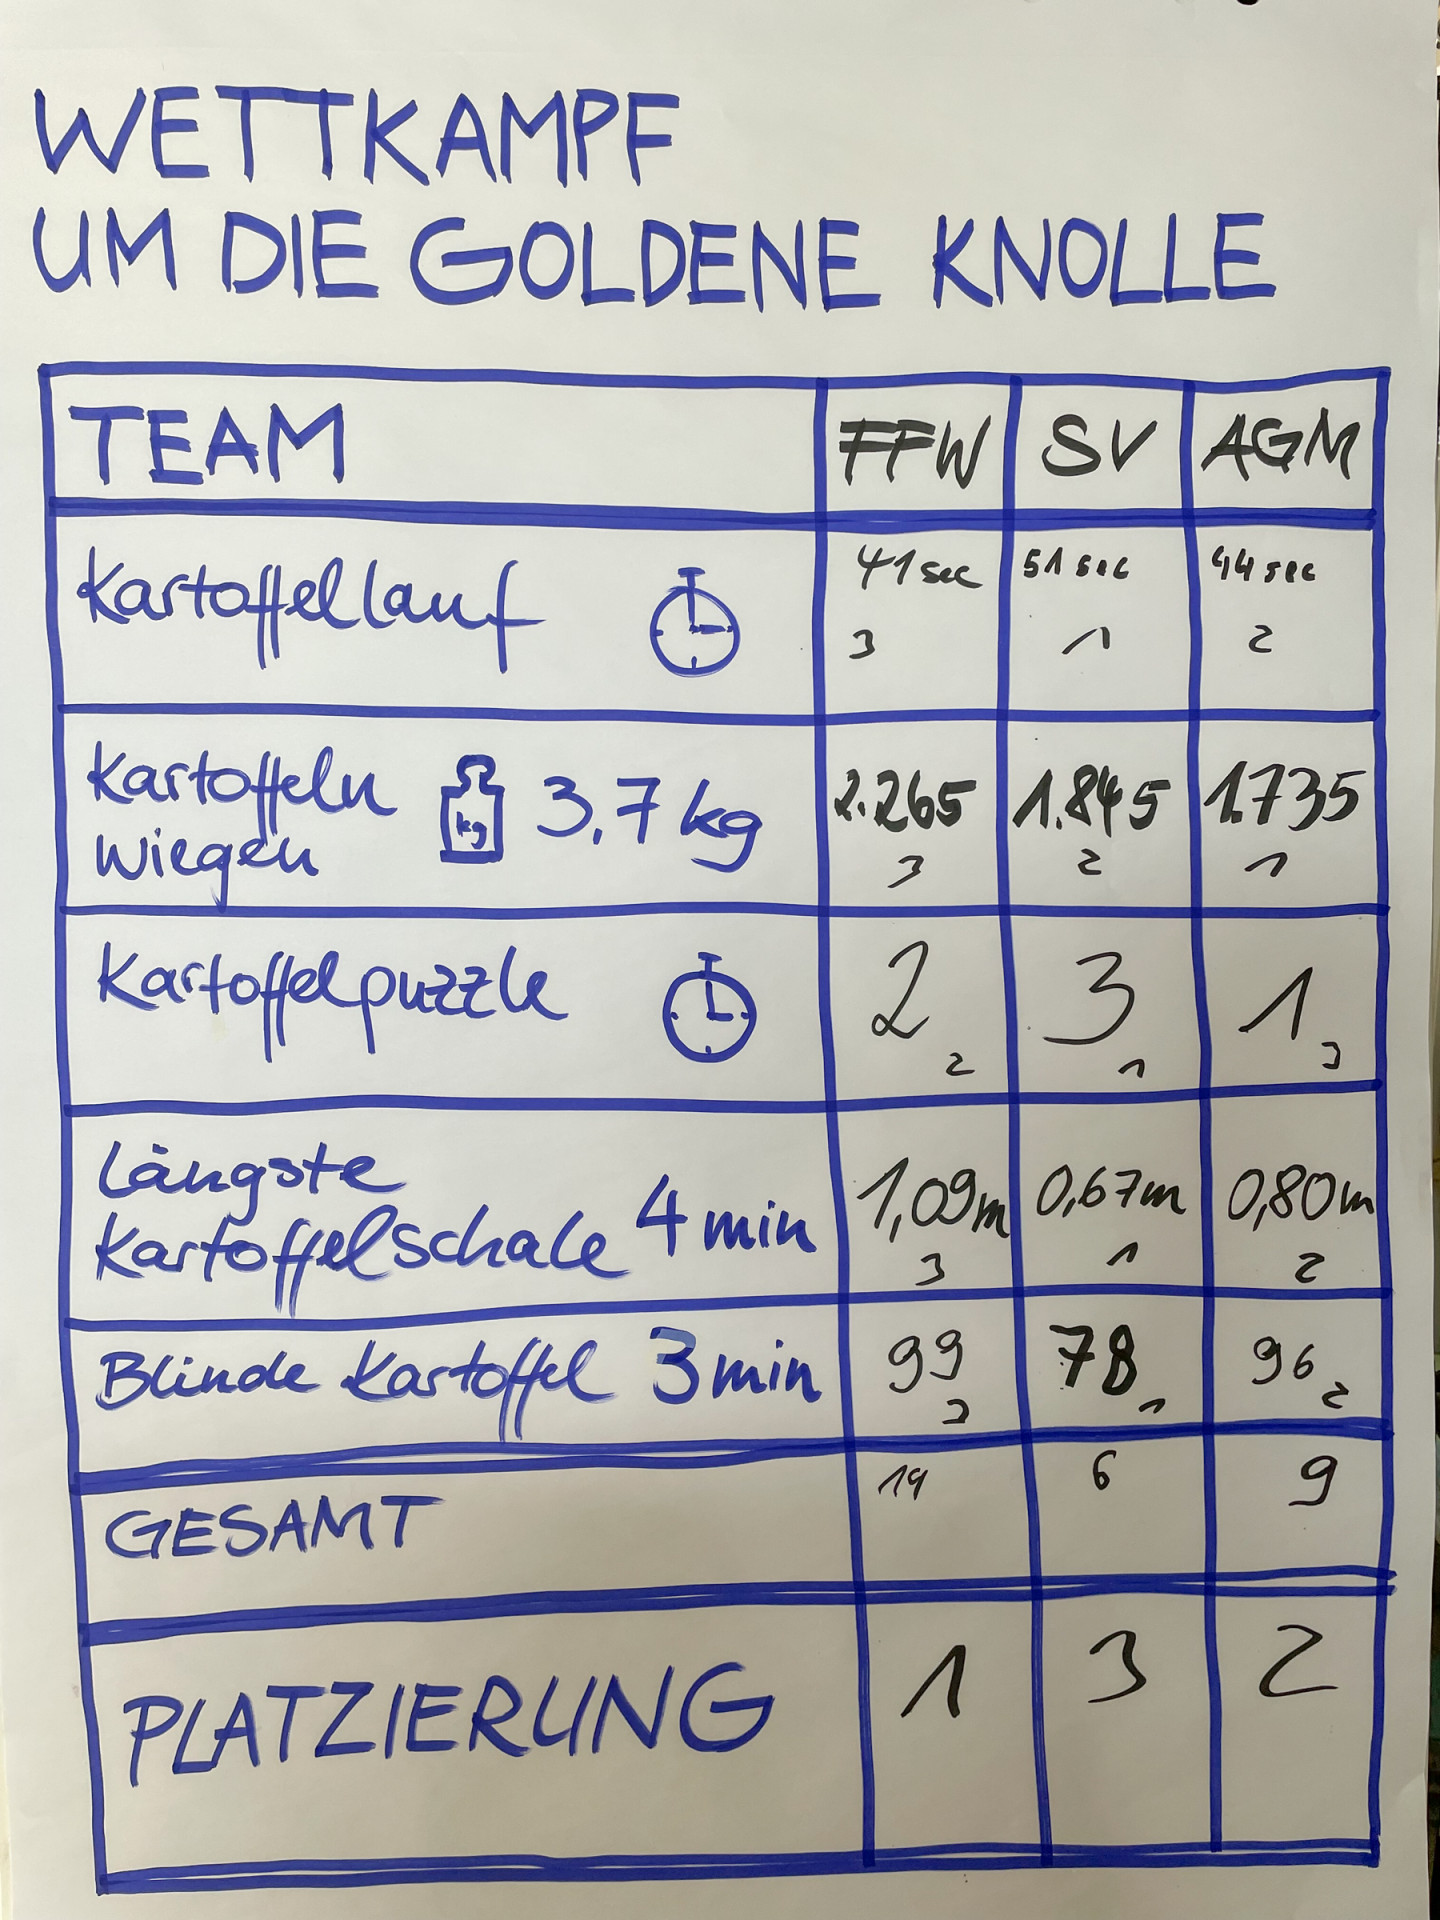 WETTKAMPF
UM DIE GOLDENE KNOLLE
TEAM FFW SV AGM
Kartoffellauf 41sec 51sec 44sec
3 1 2
Kartoffeln wiegen kg 3,7 kg 2.265 1.845 1.735
3 2 1
Kartoffelpuzzle 2 3 1
2 1 3
Längste
Kartoffelschale 4 min 1,09m 0,67m 0,80m
3 1 2
Blinde Kartoffel 3 min 99 78 96
3 1 2
GESAMT 14 6 9
PLATZIERUNG 1 3 2